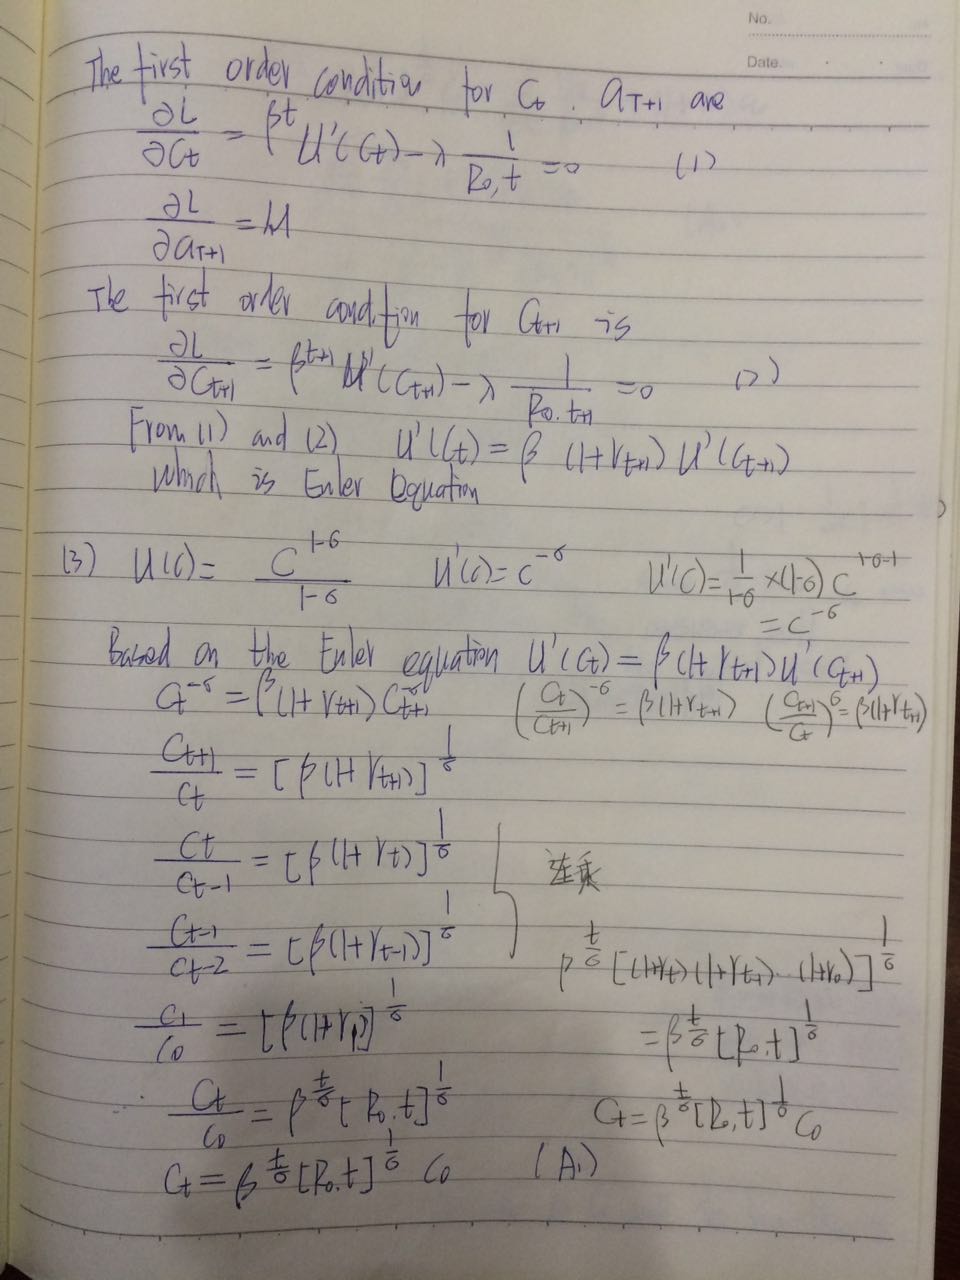 No.
Date.
The first order condition for Ct, aT+1 are
∂L/∂Ct = β^t U'(Ct) - λ 1/R0,t = 0 (1)
∂L/∂aT+1 = μ
The first order condition for Ct+1 is
∂L/∂Ct+1 = β^t+1 U'(Ct+1) - λ 1/R0,t+1 = 0 (2)
From (1) and (2) U'(Ct) = β (1+rt+1) U'(Ct+1)
which is Euler Equation
(3) U(C) = C^1-σ / 1-σ U'(C) = C^-σ U'(C) = 1/1-σ × (1-σ) C^1-σ-1
= C^-σ
Based on the Euler equation U'(Ct) = β(1+rt+1) U'(Ct+1)
Ct^-σ = β(1+rt+1) Ct+1^-σ (Ct/Ct+1)^-σ = β(1+rt+1) (Ct+1/Ct)^σ = β(1+rt+1)
Ct+1/Ct = [β(1+rt+1)]^1/σ
Ct/Ct-1 = [β(1+rt)]^1/σ 连乘
Ct-1/Ct-2 = [β(1+rt-1)]^1/σ β^t/σ [(1+rt)(1+rt-1)··(1+r0)]^1/σ
C1/C0 = [β(1+r1)]^1/σ = β^t/σ [R0,t]^1/σ
Ct/C0 = β^t/σ [R0,t]^1/σ Ct = β^t/σ [R0,t]^1/σ C0
Ct = β^t/σ [R0,t]^1/σ C0 (A1)